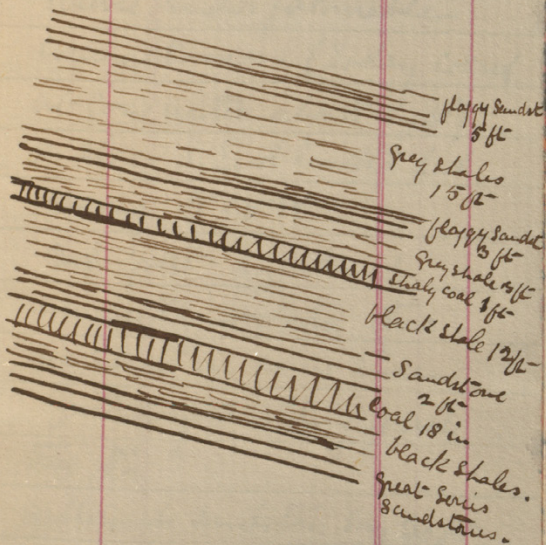 flaggy Sandst
5 ft
Grey Shales
15 ft
flaggy Sandst
3 ft
Grey shale ft
Shaly coal 1 ft
black Shale 12 ft
Sandstone
2 ft
Coal 18 in
black Shales.
Great Series
Sandstones.